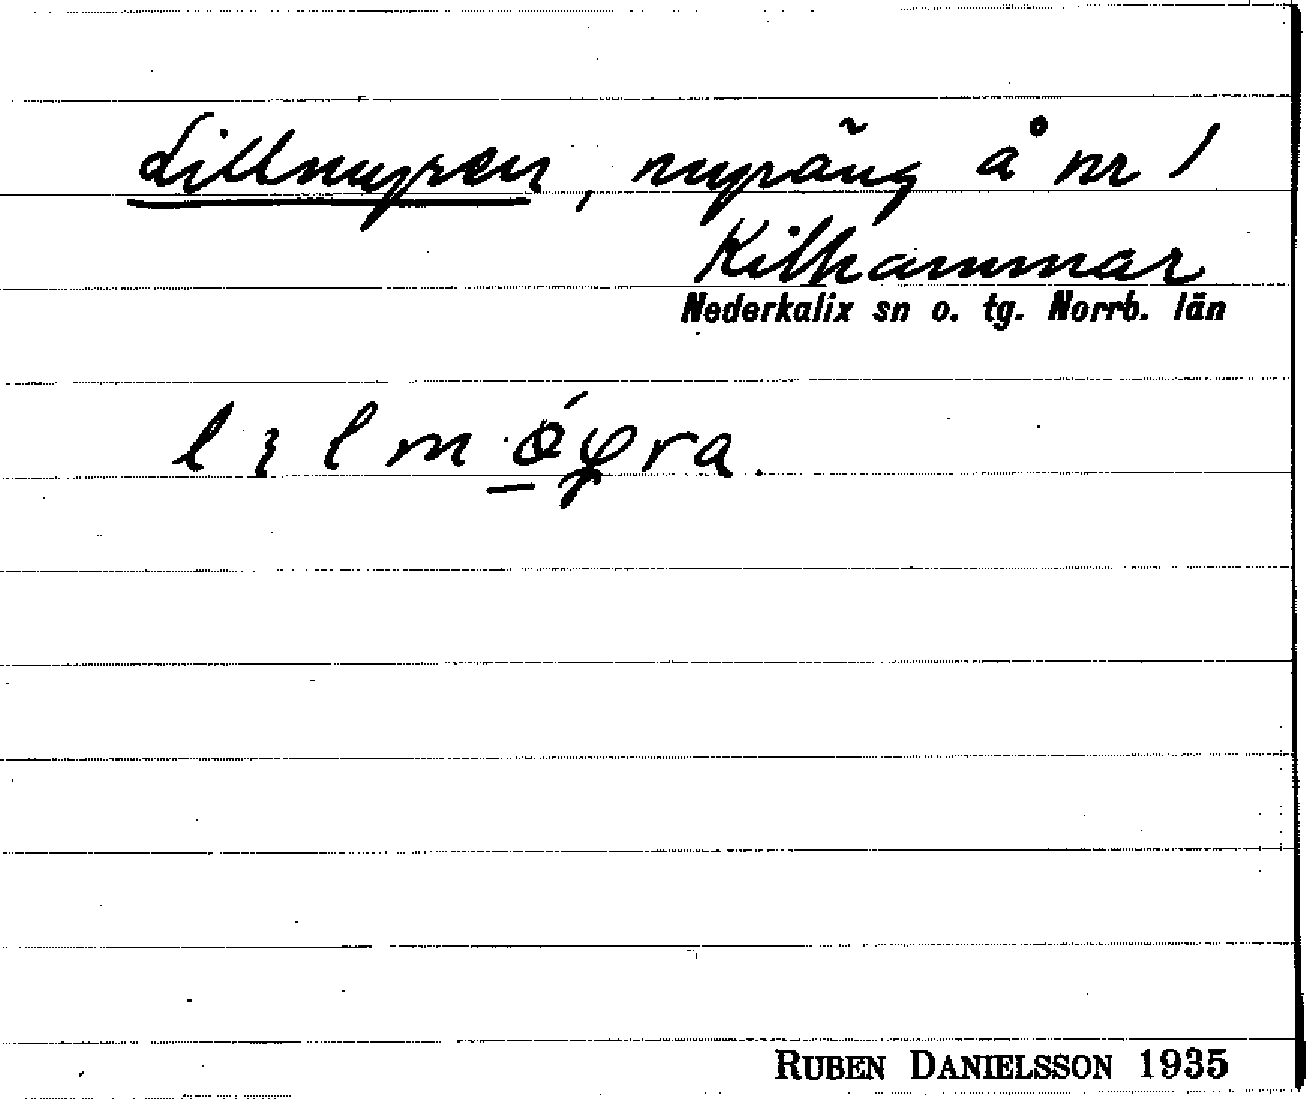 Lillmyren, myräng å nr 1
Kilhammar
Nederkalix sn o. tg. Norrb. län
RUBEN DANIELSSON 1935